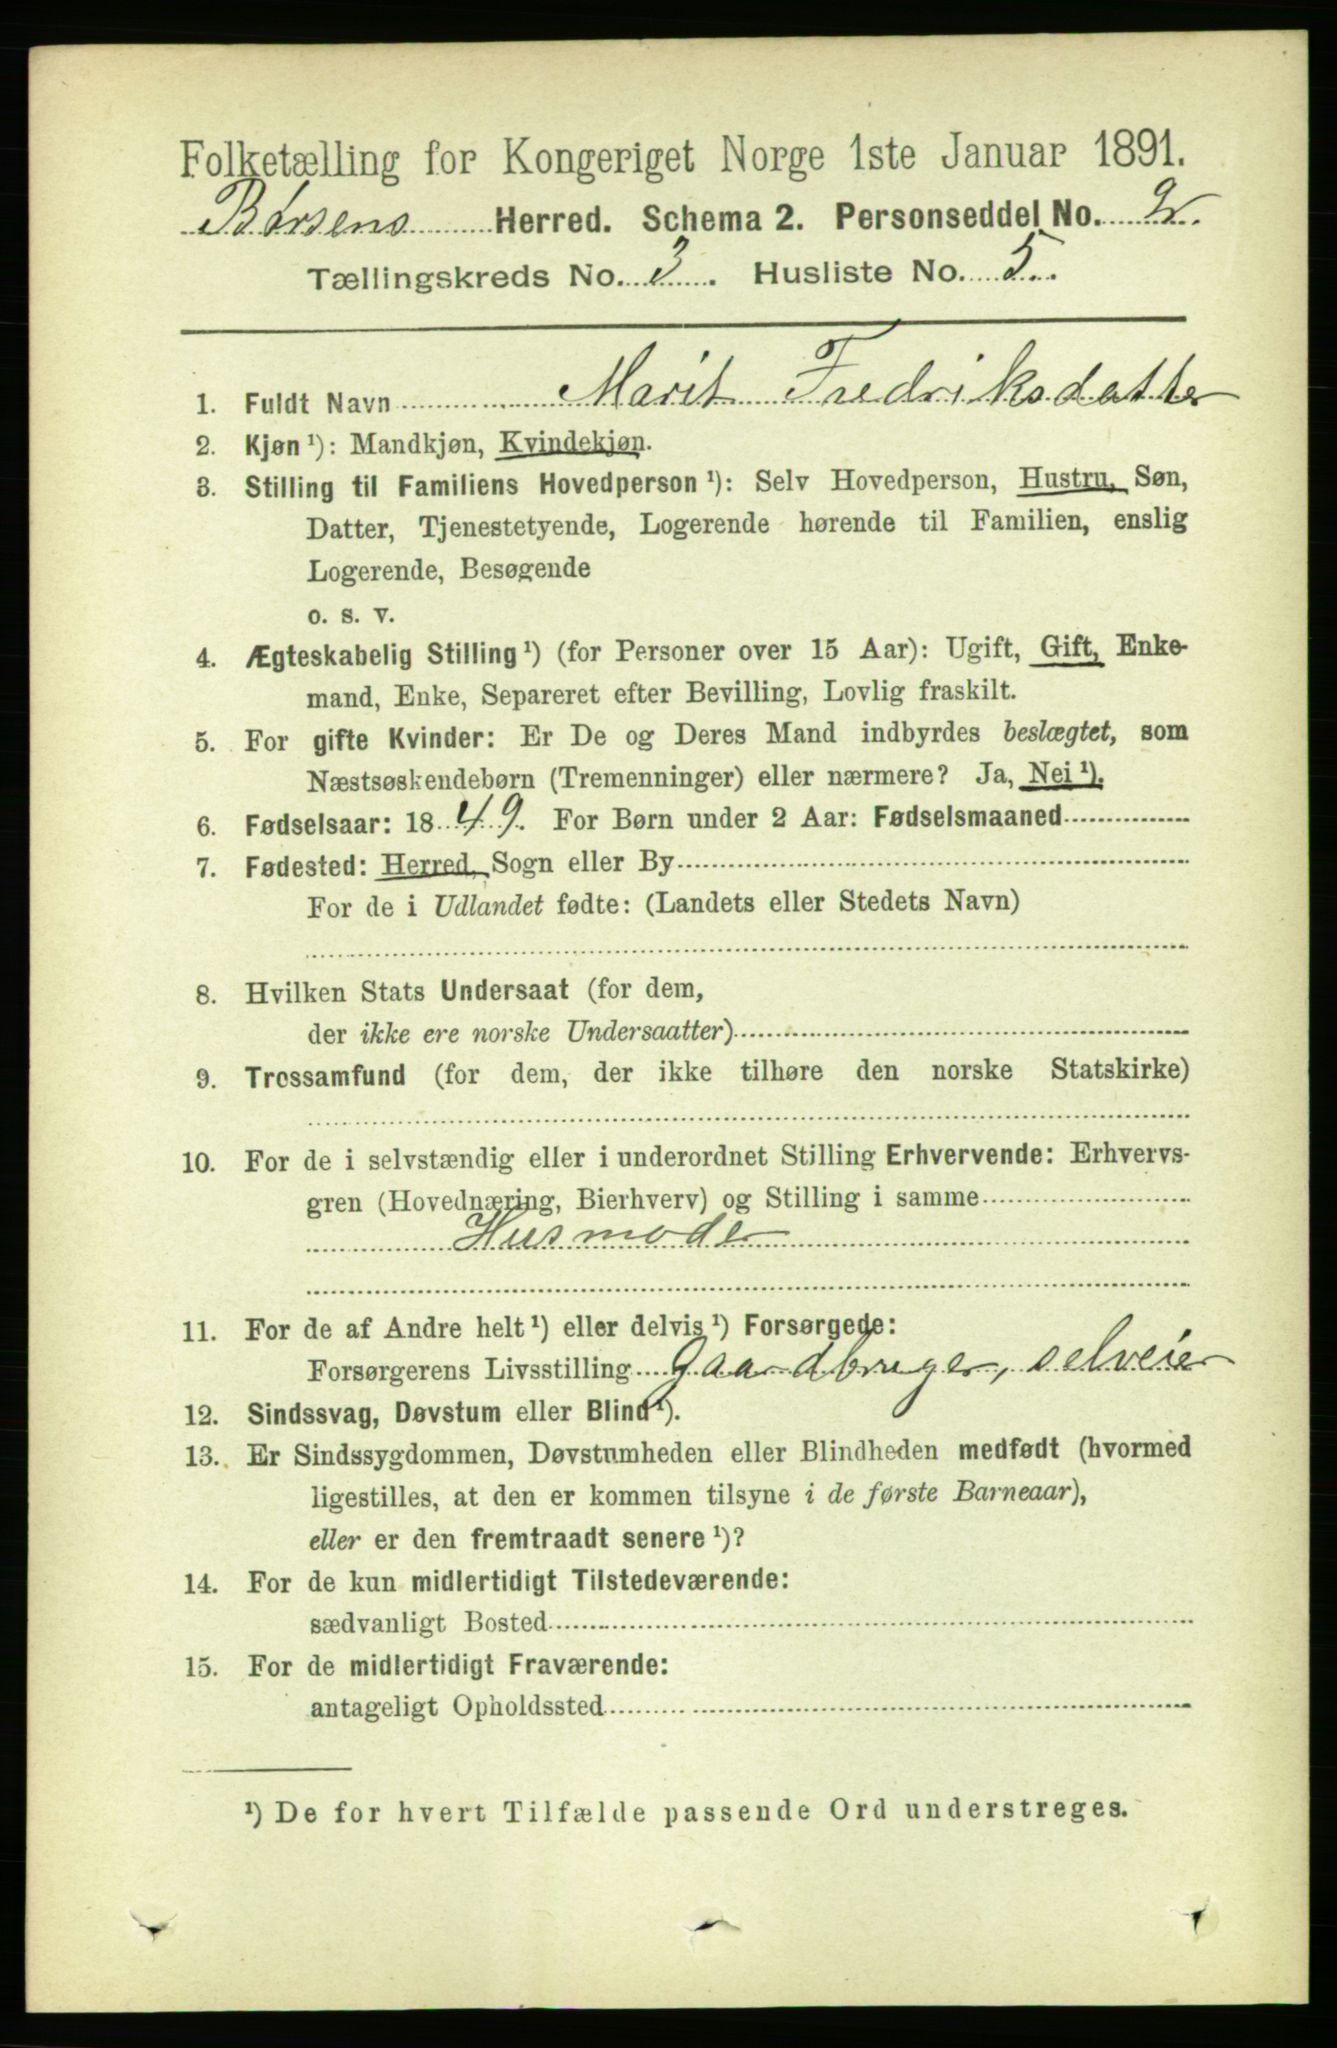 Folketælling for Kongeriget Norge 1ste Januar 1891.
Børsens Herred. Schema 2. Personseddel No. 2.
Tællingskreds No. 3. Husliste No. 5.
1. Fuldt Navn Marit Fredriksdatter
2. Kjøn ¹): Mandkjøn, Kvindekjøn.
3. Stilling til Familiens Hovedperson ¹): Selv Hovedperson, Hustru, Søn,
Datter, Tjenestetyende, Logerende hørende til Familien, enslig
Logerende, Besøgende
o. s. v.
4. Ægteskabelig Stilling ¹) (for Personer over 15 Aar): Ugift, Gift, Enke-
mand, Enke, Separeret efter Bevilling, Lovlig fraskilt.
5. For gifte Kvinder: Er De og Deres Mand indbyrdes beslægtet, som
Næstsøskendebørn (Tremenninger) eller nærmere? Ja, Nei ¹).
6. Fødselsaar: 1849. For Børn under 2 Aar: Fødselsmaaned
7. Fødested: Herred, Sogn eller By
For de i Udlandet fødte: (Landets eller Stedets Navn)
8. Hvilken Stats Undersaat (for dem,
der ikke ere norske Undersaatter)
9. Trossamfund (for dem, der ikke tilhøre den norske Statskirke)
10. For de i selvstændig eller i underordnet Stilling Erhvervende: Erhvervs-
gren (Hovednæring, Bierhverv) og Stilling i samme
Husmoder
11. For de af Andre helt ¹) eller delvis ¹) Forsørgede:
Forsørgerens Livsstilling Gaardbruger, selveier
12. Sindssvag, Døvstum eller Blind ¹).
13. Er Sindssygdommen, Døvstumheden eller Blindheden medfødt (hvormed
ligestilles, at den er kommen tilsyne i de første Barneaar),
eller er den fremtraadt senere ¹)?
14. For de kun midlertidigt Tilstedeværende:
sædvanligt Bosted
15. For de midlertidigt Fraværende:
antageligt Opholdssted
¹) De for hvert Tilfælde passende Ord understreges.